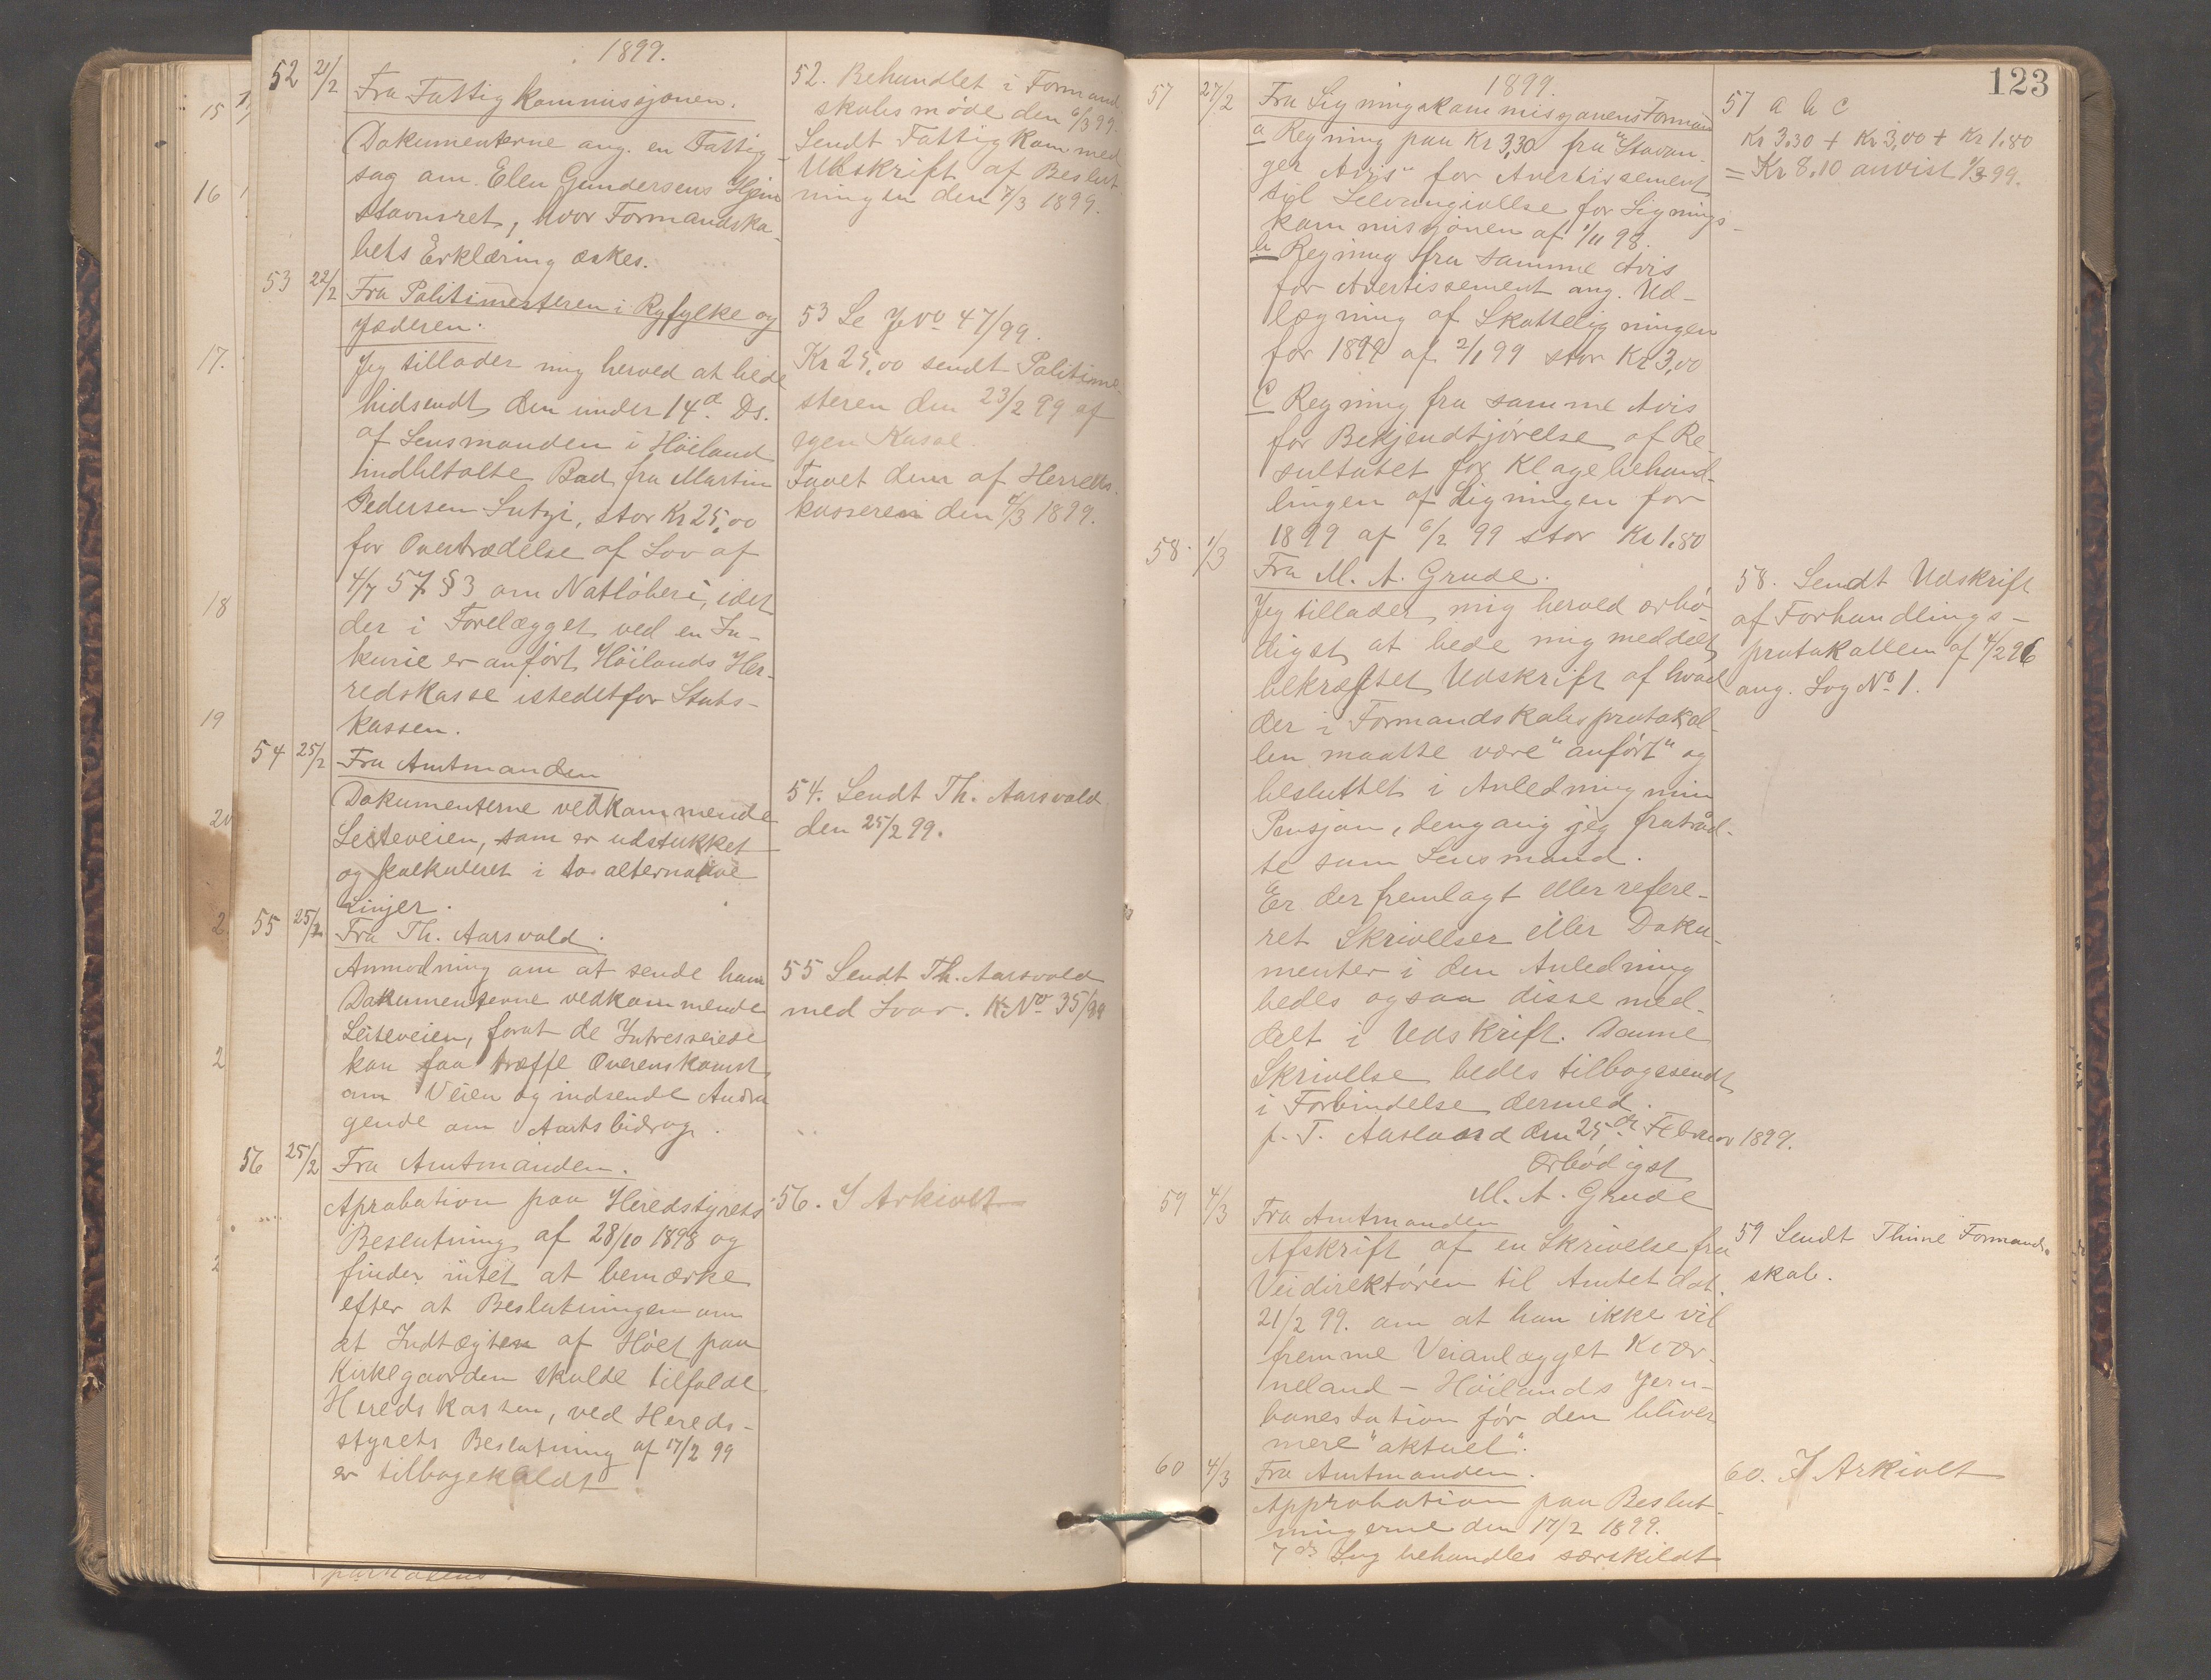 1899.
52 21/2
Fra Fattigkommissjonen.
Dokumenterne ang. en Fattig-
sag om Elen Gundersens Hjem
stavnsret, hvor Formandska-
bets Erklæring æskes.
52. Behandlet i Formand
skabsmøde den 6/3 99.
Sendt Fattigkom med
Udskrift af Beslut
ningen den 7/3 1899.
53 22/2
Fra Politimesteren i Ryfylke og
Jæderen.
Jeg tillader mig herved at bede
hidsendt den under 14d. Ds.
af Lensmanden i Höiland
indbetalte Bod fra Martin
Pedersen , stor Kr 25,00
for Overtrædelse af Lov af
4/7 57 § 3 om Natløberi, idet
der i Forelægget ved en In-
kurie er anført Höilands Her-
redskasse istedetfor Stats-
kassen.
53 Se 47/99.
Kr 25,00 sendt Politime-
steren den 23/2 99 af
egen Kasse.
Faaet dem af Herreds.
kasseren den 4/3 1899.
54 25/2
Fra Amtmanden
Dokumenterne vedkommende
Leiteveien, som er udstukket
og kalkuleret i to alternative
Linjer.
54. Sendt Th. Aarsvold
den 25/2 99.
55 25/2
Fra Th. Aarsvold.
Anmodning om at sende ham
Dokumenterne vedkommende
Leiteveien, forat de Intresserede
kan faa træffe Overenskomst
om Veien og indsende Andra
gende om Amtsbidrag.
55 Sendt Th. Aarsvold
med Svar. K.No 35/99
56 25/2
Fra Amtmanden.
Aprobation paa Heredstyrets
Beslutning af 28/10 1898 og
finder intet at bemærke
efter at Beslutningen om
at Indtægten af Höet paa
Kirkegaarden skulde tilfalde
Heredskassen, ved Hereds-
styrets Beslutning af 17/2 99
er tilbagekaldt
56. I Arkivet
123
1899.
57 27/2
Fra Ligningskommissjonens Formand
a Regning paa Kr 3,30 fra "Stavan-
ger Avis" for Avertissement
til Selvangivelse for Lignings-
kommissjonen af 1/11 98.
b Regning fra samme Avis
for Avertissement ang. Ud-
lægning af Skatteligningen
for 1899 af 2/1 99 stor Kr 3,00
C Regning fra samme Avis
for Bekjendtjørelse af Re-
sultatet for Klagebehand-
lingen af Ligningen for
1899 af 6/2 99 stor Kr 1.80
57 a b c
Kr 3.30 + Kr 3,00 + Kr 1.80
= Kr 8,10 anvist 1/3 99.
58. 1/3
Fra M. A. Grude.
Jeg tillader mig herved ærbö
digst at bede mig meddelt
bekræftet Udskrift af hvad
der i Formandskabsprotokol-
len maatte være "anført" og
besluttet i Anledning min
Pensjon, dengang jeg fratraad-
te som Lensmand.
Er der fremlagt eller refere-
ret Skrivelser eller Doku-
menter i den Anledning
bedes ogsaa disse med-
delt i Udskrift. Denne
Skrivelse bedes tilbagesendt
i Forbindelse dermed.
p. T. den 25de Februar 1899.
Ærbödigst
M. A. Grude
58. Sendt Udskrift
af Forhandlings-
protokollen af 4/2 96
ang. Sag No 1.
59 4/3
Fra Amtmanden
Afskrift af en Skrivelse fra
Veidirektøren til Amtet dat.
21/2 99. om at han ikke vil
fremme Veianlægget Kvær-
neland - Höilands Jern-
banestation før den bliver
mere "aktuel".
59 Sendt Thime Formand-
skab.
60 4/3
Fra Amtmanden.
Approbation paa Beslut-
ningerne den 17/2 1899.
7de Sag behandles særskildt
60. I Arkivet